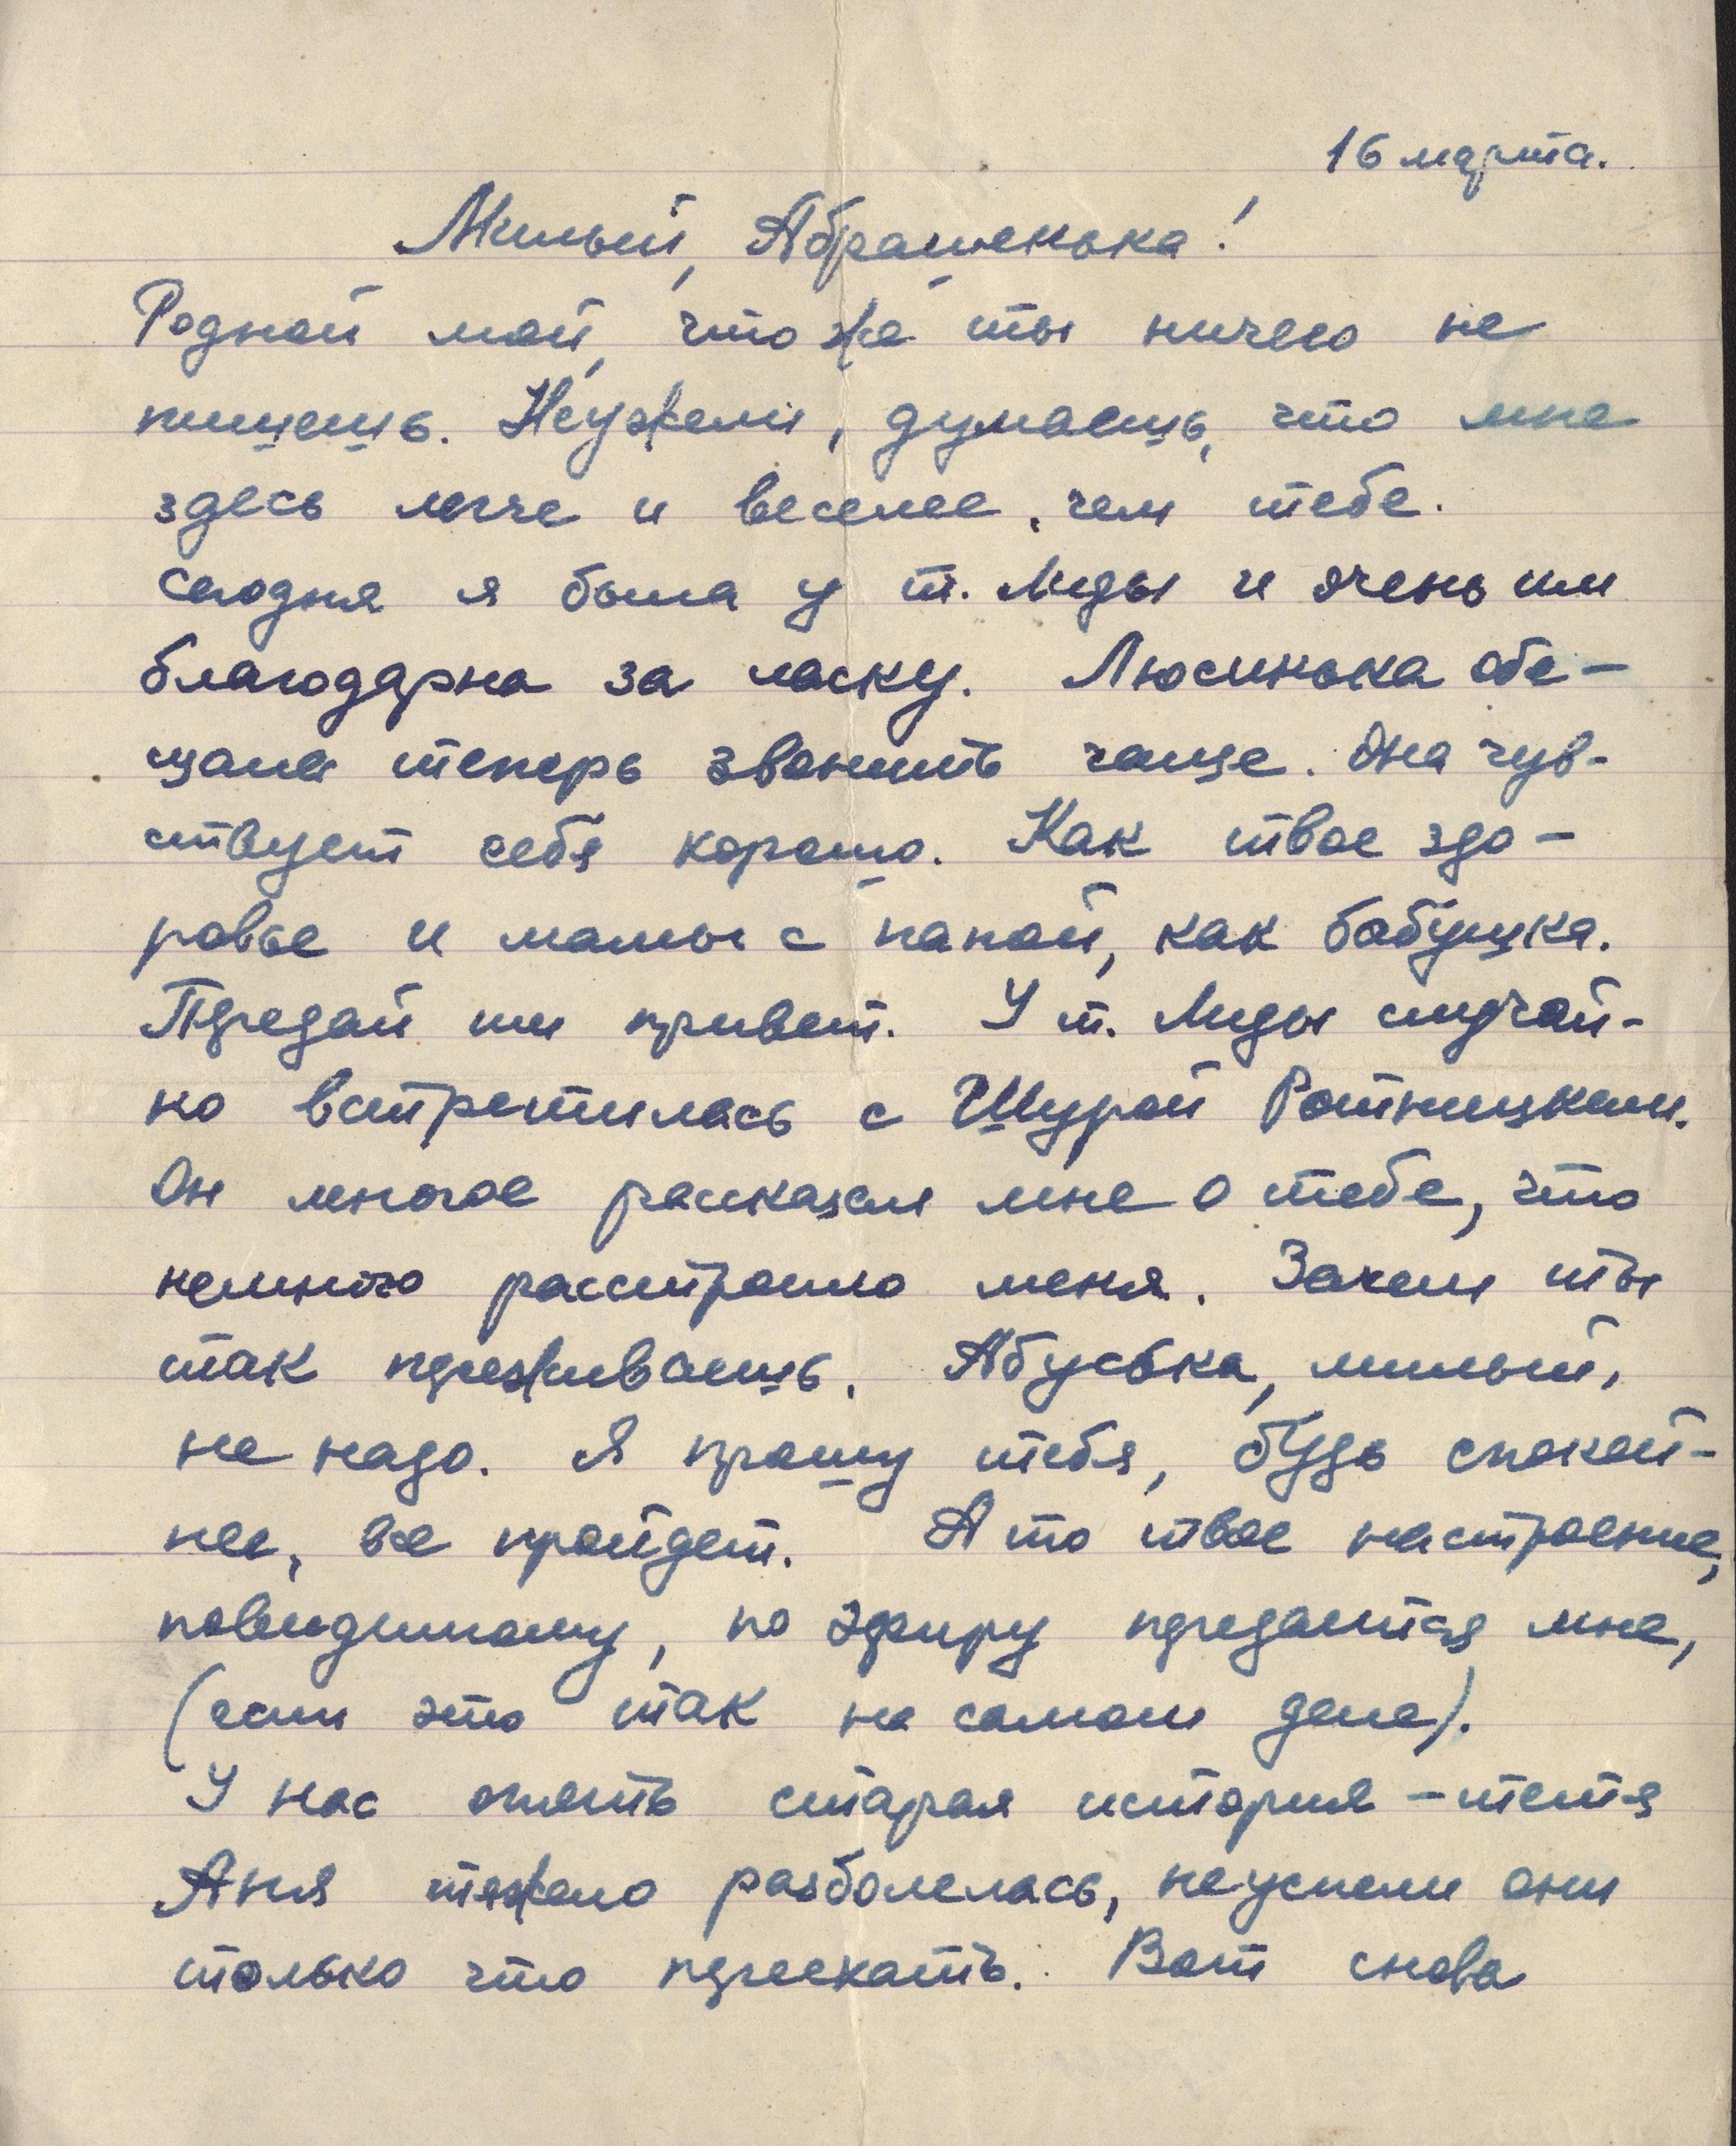 16 марта.
Милый, Абрашенька!
Родной мой, что же ты ничего не
пишешь. Неужели, думаешь, что мне
здесь легче и веселее, чем тебе.
Сегодня я была у т. Лиды и очень им
благодарна за ласку. Люсинька обе-
щала теперь звонить чаще. Она чув-
ствует себя хорошо. Как твое здо-
ровье и мамы с папой, как бабушка.
Передай им привет. У т. Лиды случай-
но встретилась с Шурой Ротницким.
Он многое рассказал мне о тебе, что
немного расстроило меня. Зачем ты
так переживаешь. Абуська, милый,
не надо. Я прошу тебя, будь спокой-
нее, все пройдет. А то твое настроение,
повидимому, по эфиру передается мне,
(если это так на самом деле).
У нас опять старая история – тетя
Аня тяжело разболелась, не успели они
только что переехать. Вот снова